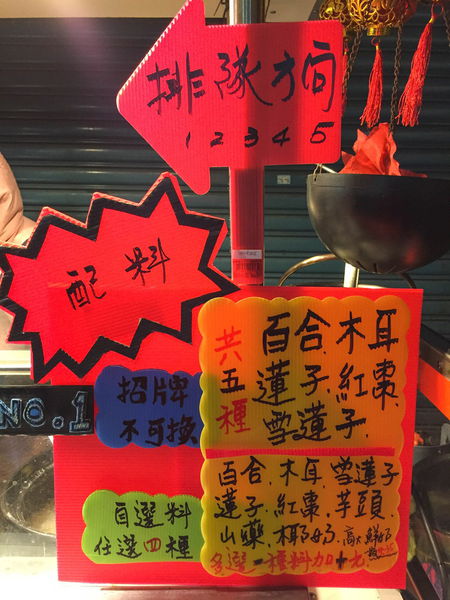 排隊方向
1 2 3 4 5
配料
NO.1
招牌
不可換
共五種
百合.木耳
蓮子.紅棗.
雪蓮子.
自選料
任選四種
百合.木耳.雪蓮子
蓮子.紅棗.芋頭.
山藥.椰奶.
多選一種料加十元